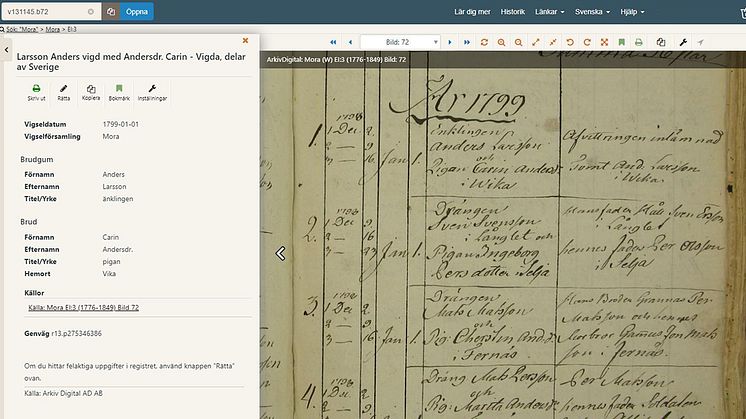 v131145.b72
Öppna
Lär dig mer
Historik
Länkar
Svenska
Hjälp
Sök: "Mora" > Mora > EI:3
Bild: 72
Larsson Anders vigd med Andersdr. Carin - Vigda, delar av Sverige
Skriv ut
Rätta
Kopiera
Bokmärk
Inställningar
Vigseldatum 1799-01-01
Vigselförsamling Mora
Brudgum
Förnamn Anders
Efternamn Larsson
Titel/Yrke änklingen
Brud
Förnamn Carin
Efternamn Andersdr.
Titel/Yrke pigan
Hemort Vika
Källor
Källa: Mora EI:3 (1776-1849) Bild 72
Genväg r13.p275346386
Om du hittar felaktiga uppgifter i registret, använd knappen "Rätta" ovan.
Källa: Arkiv Digital AD AB
ArkivDigital: Mora (W) EI:3 (1776-1849) Bild: 72
År 1799
1798
1. 1 Dec 2
2 — 9
3 — 16 Jan 1.
Enklingen
Anders Larsson
och
Pigan Carin Anders
i Wika
Afvittringen inlämnad
Tomt And. Larsson
i Wika
1798
2. 1 Dec 9
2. — 16
3 — 23 Jan 1.
Drängen
Sven Svensson
i Långlet och
Pigan Ingeborg
Persdotter i Selja
Sven Ersson
i Långlet
hennes fader Per Olsson
i Selja
1798
3. 1 Dec 2
2 — 9
3 — 16 Jan 1.
Drängen
Mats Matsson
och
Pig. Cherstin And
i Fernäs
Hans Broder Grannas Per
Matsson och hennes
Jon Mats
son i Fernäs.
1798
4. 1 Dec 2
2 — 9
Dräng Mats Persson
och
Pig. Margta Anders
Per Matsson
hennes fader